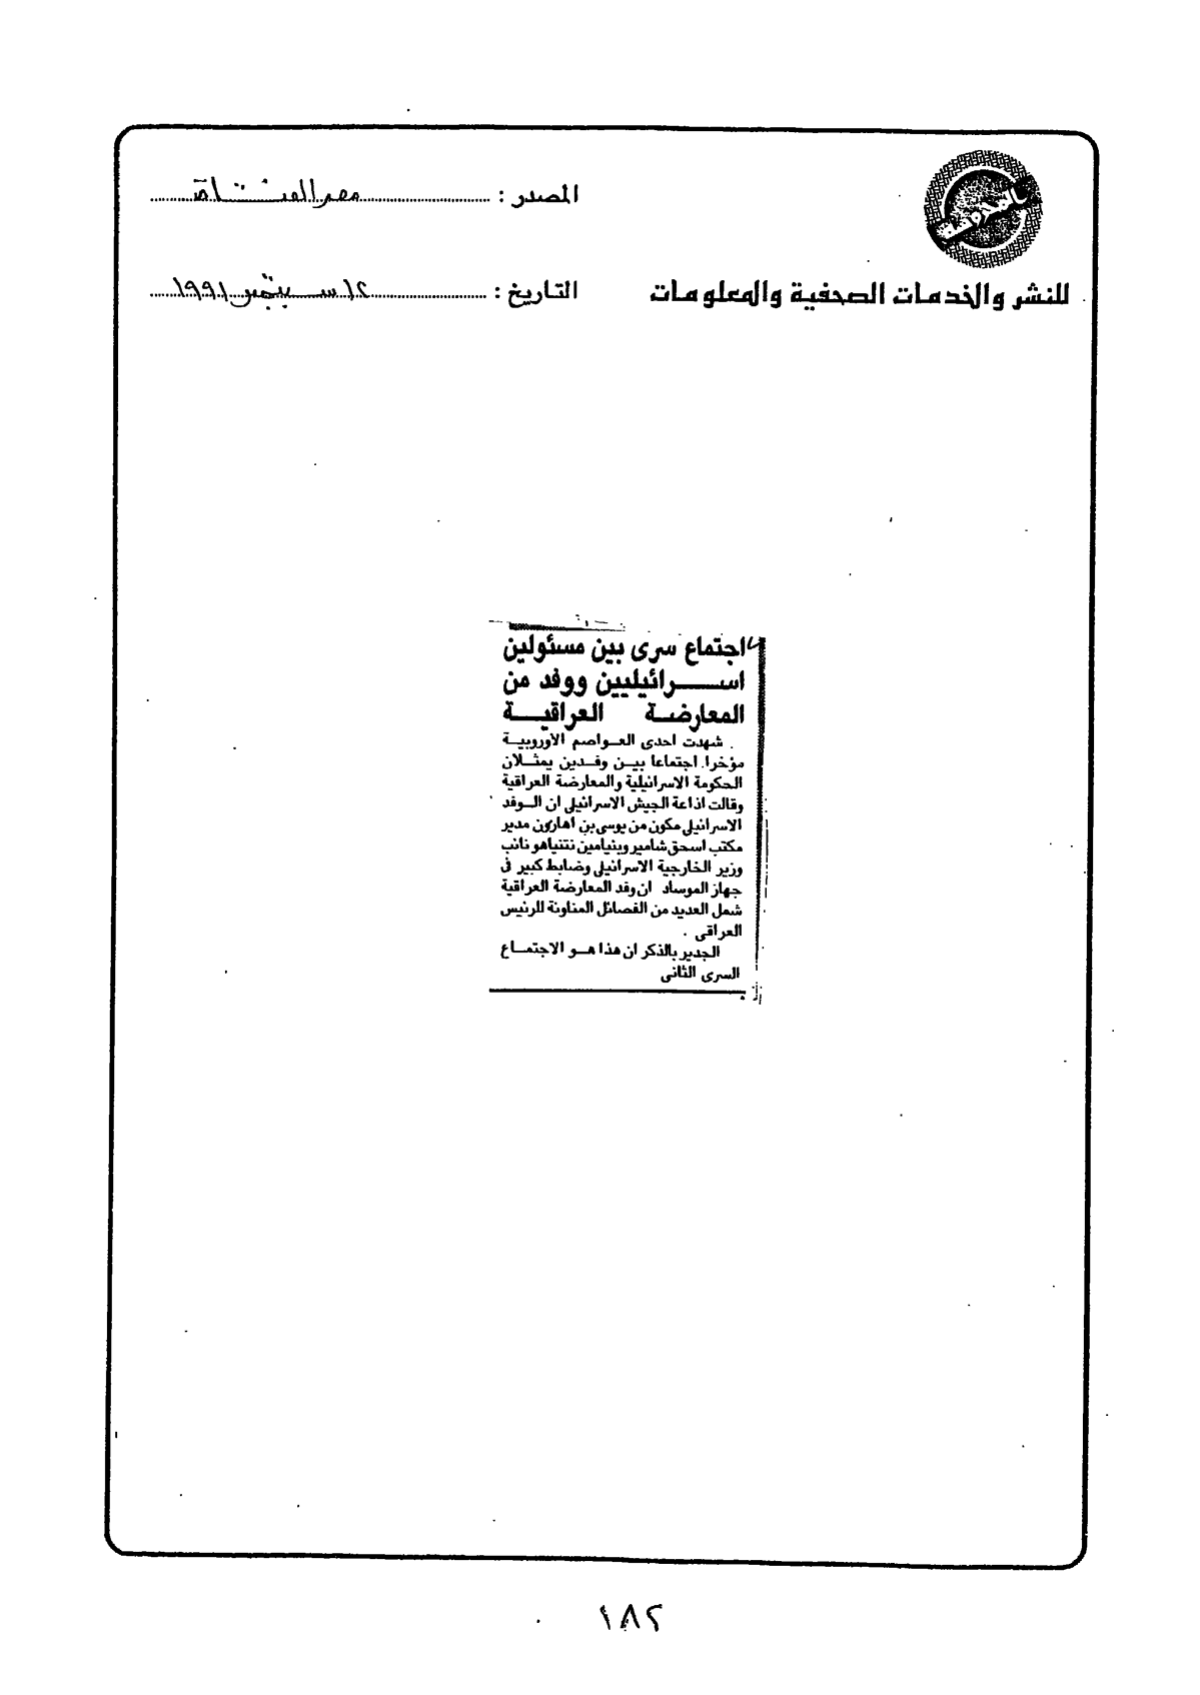 المصدر : مصر الفتاة
للنشر والخدمات الصحفية والمعلومات
التاريخ : ١٢ سبتمبر ١٩٩١
اجتماع سرى بين مسئولين
اسرائيليين ووفد من
المعارضة العراقية
شهدت احدى العواصم الاوروبية
مؤخرا اجتماعا بين وفدين يمثلان
الحكومة الاسرائيلية والمعارضة العراقية
وقالت اذاعة الجيش الاسرائيلى ان الوفد
الاسرائيلى مكون من يوسى بن اهارون مدير
مكتب اسحق شامير وبنيامين نتنياهو نائب
وزير الخارجية الاسرائيلى وضابط كبير فى
جهاز الموساد ان وفد المعارضة العراقية
شمل العديد من الفصائل المناوئة للرئيس
العراقى .
الجدير بالذكر ان هذا هو الاجتماع
السرى الثانى
١٨٢